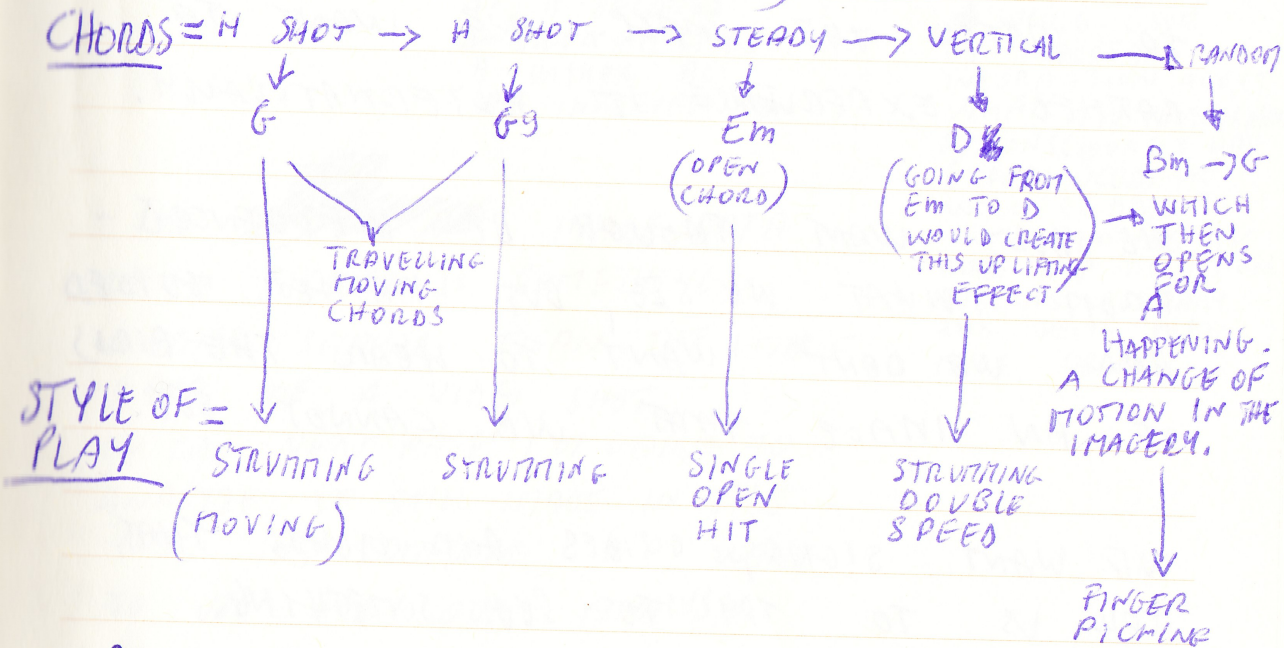 CHORDS = H SHOT → H SHOT → STEADY → VERTICAL → RANDOM
G
G9
Em
(OPEN
CHORD)
D
(GOING FROM
Em TO D
WOULD CREATE
THIS UPLIFTING
EFFECT)
Bm → G
WHICH
THEN
OPENS
FOR
A
HAPPENING.
A CHANGE OF
MOTION IN THE
IMAGERY.
TRAVELLING
MOVING
CHORDS
STYLE OF =
PLAY
STRUMMING
(MOVING)
STRUMMING
SINGLE
OPEN
HIT
STRUMMING
DOUBLE
SPEED
FINGER
PICKING